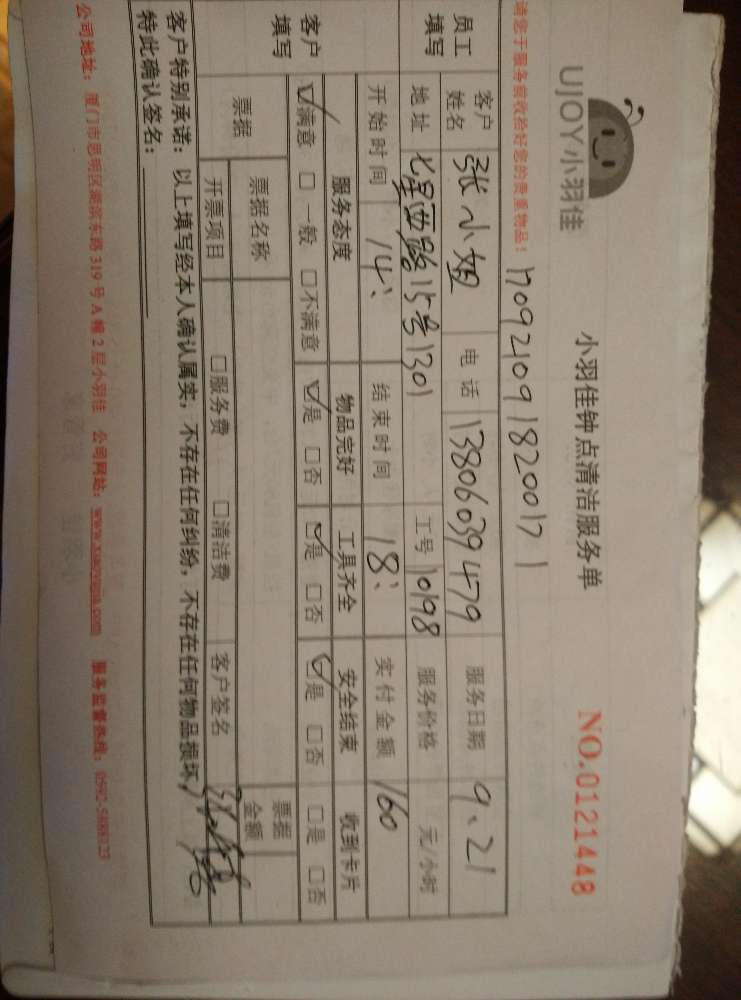 UJOY小羽佳
小羽佳钟点清洁服务单
NO.0121448
请您于服务前收拾好您的贵重物品！ 170921091820017 1
员工填写
客户姓名 张小姐 电话 13806039479 服务日期 9.21
地址 七星西路15号1301 工号 10198 服务价格 元/小时
开始时间 14: 结束时间 18: 实付金额 160
客户填写
服务态度 物品完好 工具齐全 安全结束 收到卡片
☑满意 □一般 □不满意 ☑是 □否 ☑是 □否 ☑是 □否 □是 □否
票据 票据名称 票据金额
开票项目 □服务费 □清洁费 客户签名
客户特别承诺：以上填写经本人确认属实，不存在任何纠纷，不存在任何物品损坏，
特此确认签名：
公司地址：厦门市思明区湖滨东路319号A幢2层小羽佳 公司网站：www.xiaoyujia.com 服务监督热线：0592-5488123